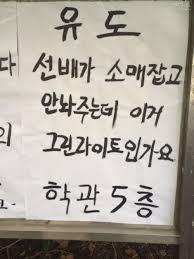 유도
선배가 소매잡고
안놔주는데 이거
그린라이트인가요
학관 5층
다
의